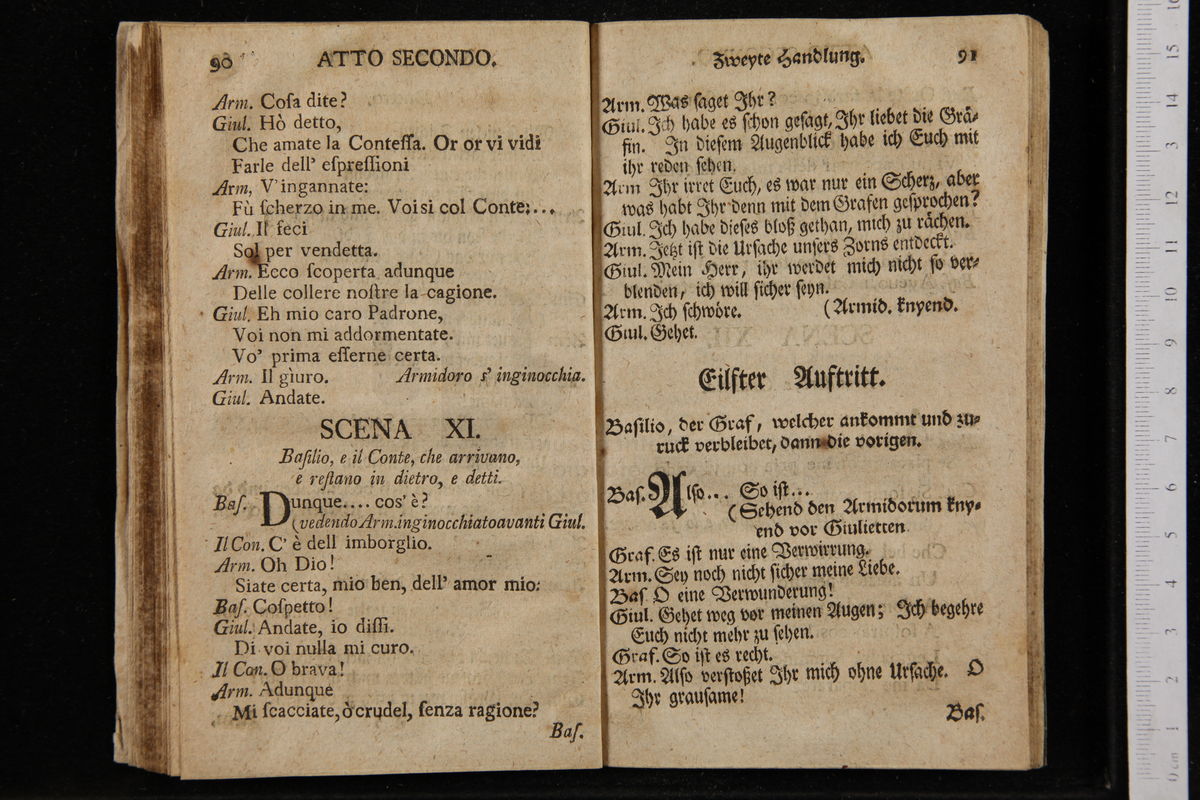 90
ATTO SECONDO.
Arm. Coſa dite?
Giul. Hò detto,
Che amate la Conteſſa. Or or vi vidi
Farle dell' eſpreſſioni
Arm, V'ingannate:
Fù ſcherzo in me. Voi sì col Conte;...
Giul. Il feci
Sol per vendetta.
Arm. Ecco ſcoperta adunque
Delle collere noſtre la cagione.
Giul. Eh mio caro Padrone,
Voi non mi addormentate.
Vo' prima eſſerne certa.
Arm. Il gìuro. Armidoro s' inginocchia.
Giul. Andate.
SCENA XI.
Baſilio, e il Conte, che arrivano,
e reſtano in dietro, e detti.
Baſ. Dunque.... cos' è?
(vedendo Arm.inginocchiatoavanti Giul.
Il Con. C' è dell imborglio.
Arm. Oh Dio!
Siate certa, mio ben, dell' amor mio:
Baſ. Coſpetto!
Giul. Andate, io diſſi.
Di voi nulla mi curo.
Il Con. O brava!
Arm. Adunque
Mi ſcacciate, ò crudel, ſenza ragione?
Baſ.
Zweyte Handlung.
91
Arm. Was ſaget Ihr?
Giul. Ich habe es ſchon geſagt, Ihr liebet die Grä-
fin. In dieſem Augenblick habe ich Euch mit
ihr reden ſehen.
Arm Ihr irret Euch, es war nur ein Scherz, aber
was habt Ihr denn mit dem Grafen geſprochen?
Giul. Ich habe dieſes bloß gethan, mich zu rächen.
Arm. Jetzt iſt die Urſache unſers Zorns entdeckt.
Giul. Mein Herr, ihr werdet mich nicht ſo ver-
blenden, ich will ſicher ſeyn.
Arm. Ich ſchwöre. (Armid. knyend.
Giul. Gehet.
Eilfter Auftritt.
Baſilio, der Graf, welcher ankommt und zu-
ruck verbleibet, dann die vorigen.
Baſ. Alſo... So iſt...
(Sehend den Armidorum kny-
end vor Giulietten
Graf. Es iſt nur eine Verwirrung.
Arm. Sey noch nicht ſicher meine Liebe.
Baſ O eine Verwunderung!
Giul. Gehet weg vor meinen Augen; Ich begehre
Euch nicht mehr zu ſehen.
Graf. So iſt es recht.
Arm. Alſo verſtoßet Ihr mich ohne Urſache. O
Ihr grauſame!
Baſ.
0 cm 1 2 3 4 5 6 7 8 9 10 11 12 3 14 15 16